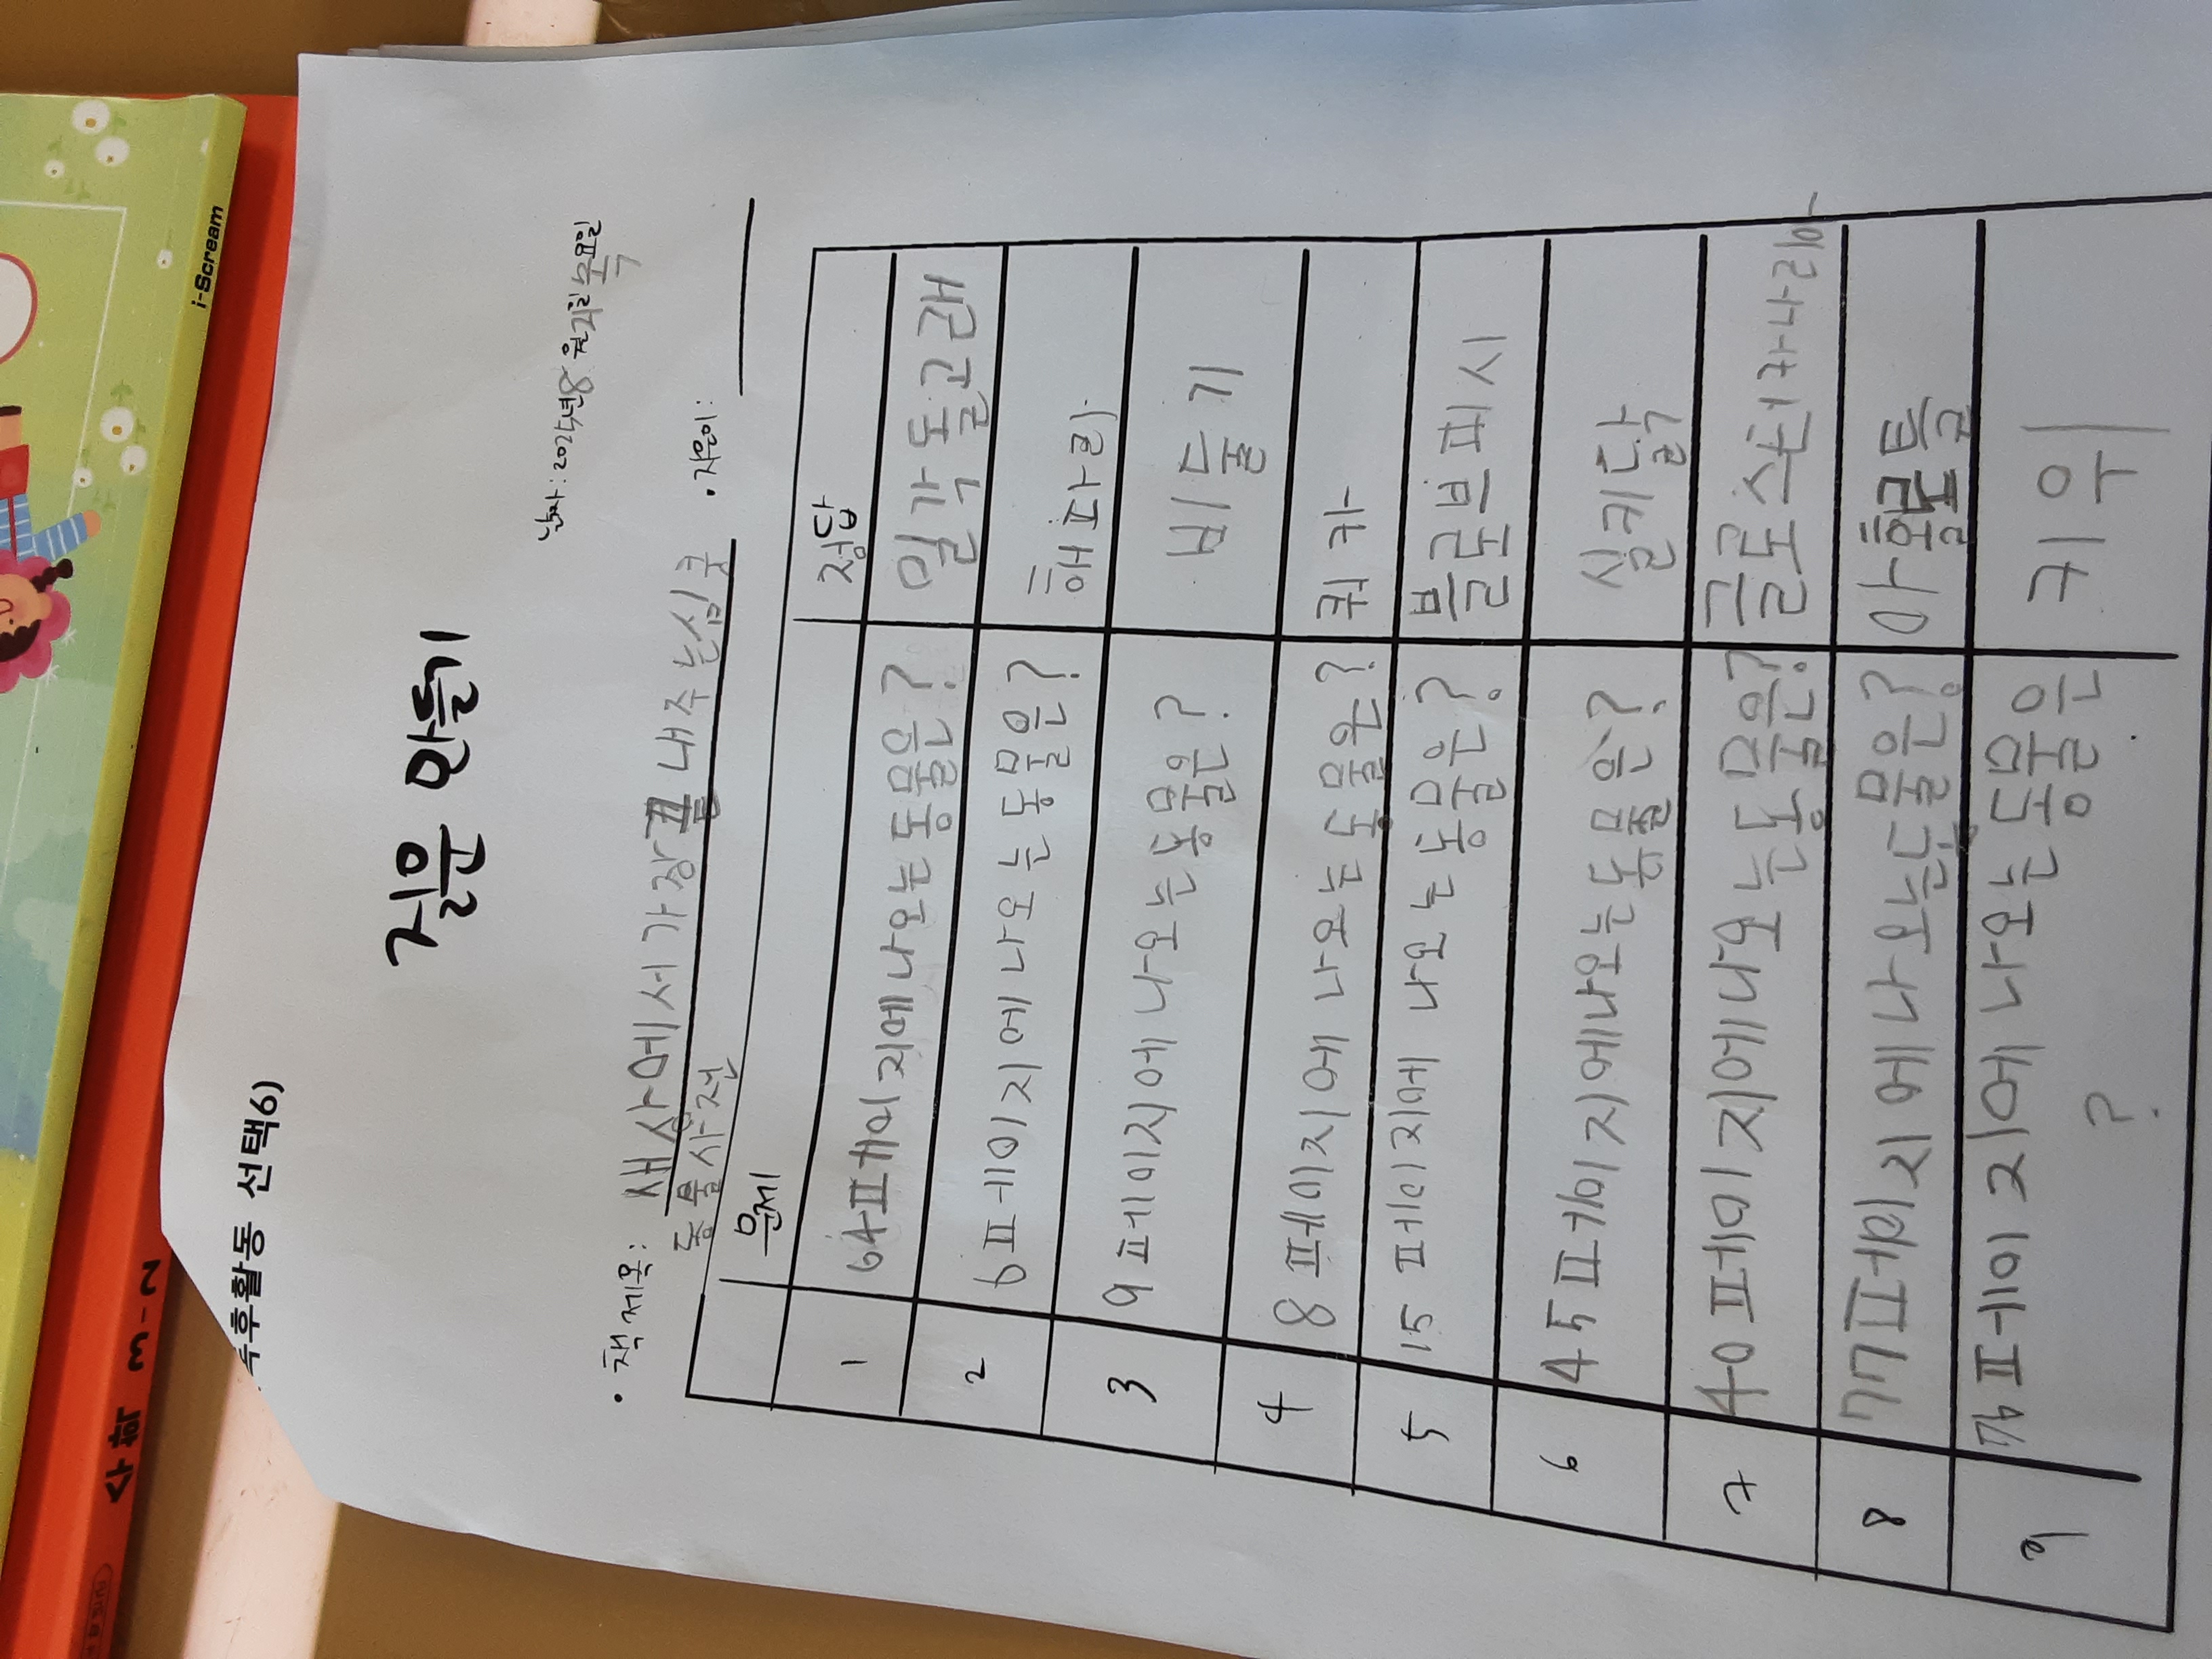 i-Scream
사회 3-2
독후활동 선택6)
질문 만들기
날짜: 2025년 8월 21일 목요일
• 책 제목: 새상에서 가장 내 주는 심쿵 • 지은이:
동물사전
문제 정답
1 64페이지에 나오는 동물은? 일각돌고래
2 6페이지에 나오는 동물은? 해파리
3 9페이지에 나오는 동물은? 비둘기
4 8페이지에 나오는 동물은? 쿼카
5 15페이지에 나오는 동물은? 블롭피시
6 45페이지에 나오는 동물은? 실키닭
7 40페이지에 나오는 동물은? 글로스터카나리아
8 77페이지에 나오는 동물은? 아홀로틀
9 76페이지에 나오는 동물은 키위
?